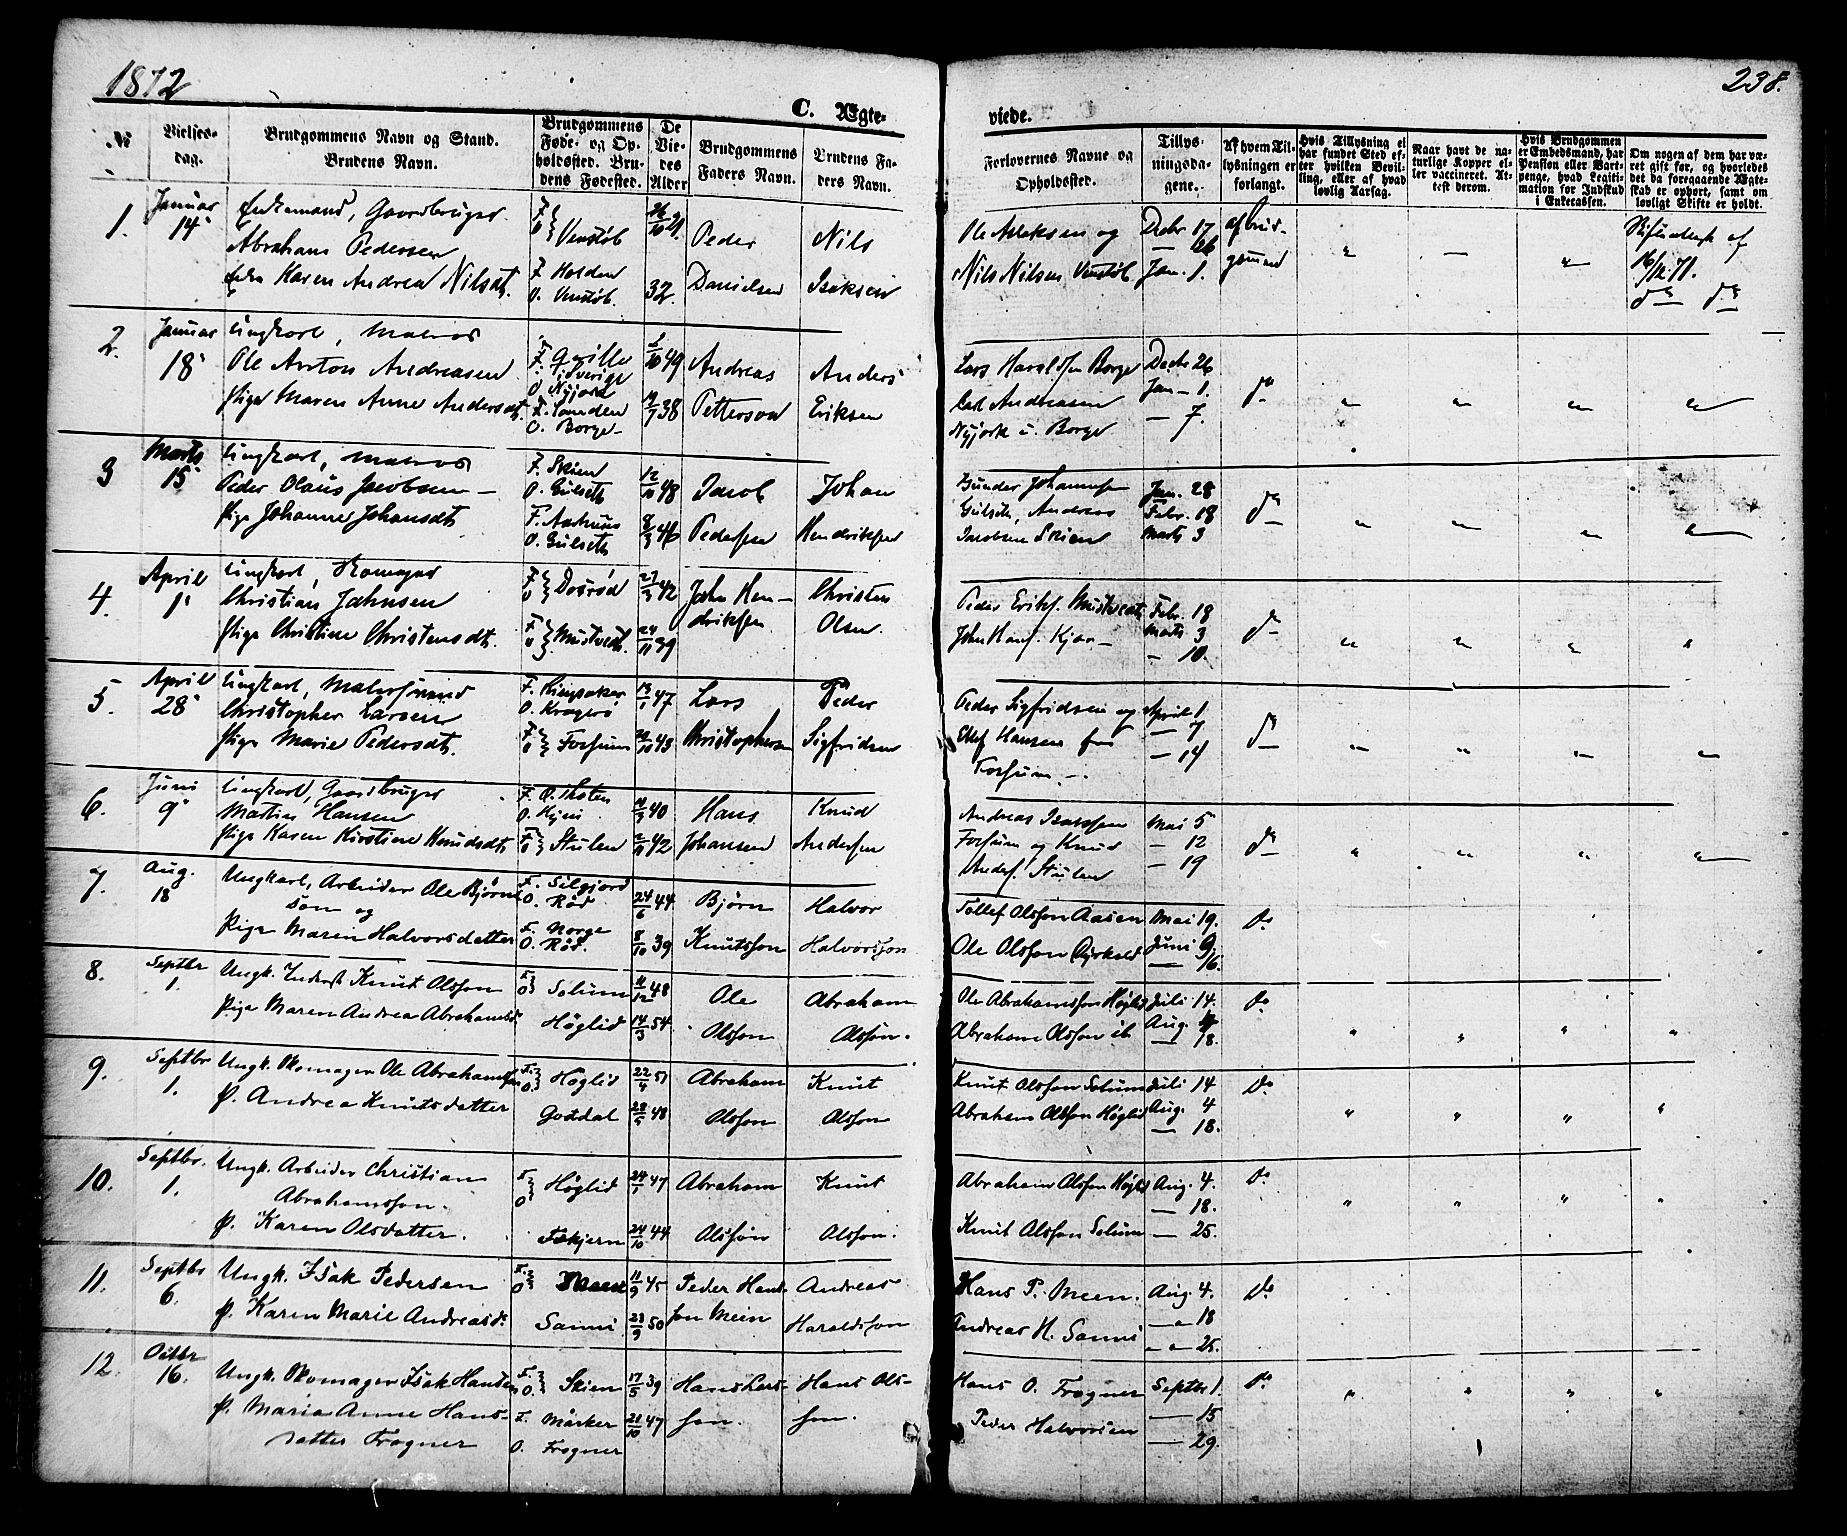 1872
238.
C. Ægte-
viede.
No
Vielses-
dag.
Brudgommens Navn og Stand.
Brudens Navn.
Brudgommens
Føde- og Op-
holdssted. Bru-
dens Fødested.
De
Vie-
des
Alder
Brudgommens
Faders Navn.
Brudens Fa-
ders Navn.
Forlovernes Navne og
Opholdssted.
Tillys-
ningsda-
gene.
Af hvem Til-
lysningen er
forlangt.
Hvis Tillysning ei
har fundet Sted ef-
ter hvilken Bevil-
ling, eller af hvad
lovlig Aarsag.
Naar havt de na-
turlige Kopper el-
ler vaccineret. At-
test derom.
Hvis Brudgommen
er Embedsmand, har
Pension eller Vart-
penge, hvad Legiti-
mation for Indskud
i Enkecassen.
Om nogen af dem har væ-
ret gift før, og hvorledes
det da foregaaende Ægte-
skab er ophørt, samt om
lovligt Skifte er holdt.
1.
Januar
14
Enkemand, Gaardbruger
Abraham Pedersen
Enke Karen Andrea Nilsdt.
F
O Venstøb
F. Holden
O. Venstøb.
32.
Peder
Danielsen
Nils
Isaksen
Ole Aslaksen og
Nils Nilsen Venstøb
Decbr. 17
— 26
Jan. 1.
af brud-
gommen
Skifteattest af
16/12 71.
2.
Januar
18
Ungkarl, Matros
Ole Anton Andreasen
Pige Maren Anne Andersdt.
O. Borge
Andreas
Petterson
Anders
Eriksen
Lars Haraldsen Borge
Carl Andreasen
Nyjork i Borge
Decbr 26
Jan — 1.
— 7.
do
3
Marts
15
Ungkarl, Matros
Peder Olaus Jacobsen
Pige Johanne Johansdt.
F. Skien
O. Gulseth
F. Aarhuus
O. Gulseth
12/11 48
8/3 46
Jacob
Pedersen
Johan
Hendriksen
Gunder Johannesen
Gulseth, Andreas
Jacobsen Skien
Jan. 28
Febr. 18
Marts 3
do
4.
April
1
Ungkarl, Skomager
Christian Jahnsen
Pige Christine Christensdt.
27/3 42
24/11 39
John Hen-
driksen
Christen
Olsen.
Peder Eriks. Mustvedt
John Hans. Kjær
Febr. 18
Marts 3
— 10.
do
5.
April
28
Ungkarl, Malersvend
Christopher Larsen
Pige Marie Pedersdt.
F. Ringsaker
O. Kragerø
F
O Fossum
Lars
Christophersen
Peder
Sigfridsen
Peder Sigfridsen og
Ellef Hansen fra
Fossum
April 1
— 7
— 14
do
6.
Juni
9
Ungkarl, Gaardbruger
Martin Hansen
Pige Karen Kirstine Knudsdt.
F
O Stulen
Hans
Johansen
Knud
Andersen
Andreas Isaksen
Fossum og Knud
Anders. Stulen
Mai 5
— 12
— 19
do
7.
Aug.
18
Ungkarl, Arbeider Ole Bjørn-
son og
Pige Maren Halvorsdatter
F. Silgjord
O. Rød
F. Norge
O. Rød.
24/6 44
8/10 39
Bjørn
Knutsson
Halvor
Halvorsson
Tollef Olsson Aasen
Ole Olsson
Mai 19.
Juni 9
— 16.
Do
8.
Septbr
1.
Ungk. Inderst Knut Olsson
Pige Maren Andrea Abrahamsd.
F
O Solum
Høglid
11/12 48
14/3 54
Ole
Olsson
Abraham
Olsson.
Ole Abrahamsson Høglid
Abraham Olsson ib
Juli 14.
Aug. 4
— 18.
Do
9.
Septbr
1.
Ungk. Skomager Ole Abrahamsson
P. Andrea Knutsdatter
F.
O. Høglid
Goddal
22/4 51
28/5 48
Abraham
Olsson
Knut
Olsson
Knut Olsson Solum
Abraham Olsson Høglid
Juli 14
Aug. 4
— 18.
Do
10.
Septbr.
1.
Ungk. Arbeider Christian
Abrahamsson.
P. Karen Olsdatter.
F
O Høglid
Fækjern
24/1 47
24/10 44
Abraham
Olsson
Knut
Olsson.
Abraham Olsson Høglid
Knut Olsson Solum
Aug. 4.
— 18.
— 25.
Do
11.
Septbr
6.
Ungk. Isak Pedersen
P. Karen Marie Andreasd.
F.
O Meen
Sanni
11/9 45
23/9 50
Peder Hans-
son Meen
Andreas
Haraldsson
Hans P. Meen.
Andreas H. Sanni
Aug. 4.
— 18
— 25.
Do
12.
Octbr
16.
Ungk. Skomager Isak Hansen
P. Maria Anne Hans-
datter Frogner
F.
O. Skien
F. Mårker
O. Frogner
17/5 39
21/10 47
Hans Lars-
son.
Hans Ols-
son.
Hans O. Frogner
Peder Halvorsen
Septbr 1.
— 15
— 29.
Do